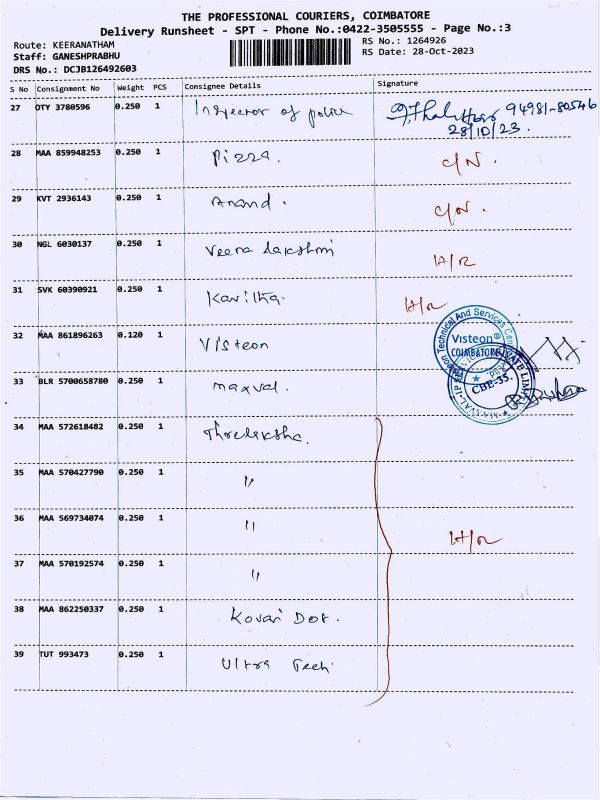 THE PROFESSIONAL COURIERS, COIMBATORE
Delivery Runsheet - SPT - Phone No.:0422-3505555 - Page No.:3
Route: KEERANATHAM RS No.: 1264926
Staff: GANESHPRABHU RS Date: 28-Oct-2023
DRS No.: DCJB126492603
S No Consignment No Weight PCS Consignee Details Signature
27 OTY 3780596 0.250 1 Inspector of police 94981-80546
28/10/23.
28 MAA 859948253 0.250 1 Pizza. C/N.
29 KVT 2936143 0.250 1 Anand. C/N.
30 NGL 6030137 0.250 1 Veera Lakshmi H/R
31 SVK 60390921 0.250 1 Kavitha. H/R
32 MAA 861896263 0.120 1 Visteon
Visteon Technical And Services
Visteon®
COIMBATORE
33 BLR 5700658780 0.250 1 maxval.
CBE-35.
34 MAA 572618482 0.250 1
35 MAA 570427790 0.250 1 "
36 MAA 569734074 0.250 1 " H/R
37 MAA 570192574 0.250 1 "
38 MAA 862250337 0.250 1 Kovai Dot.
39 TUT 993473 0.250 1 Ultra Tech